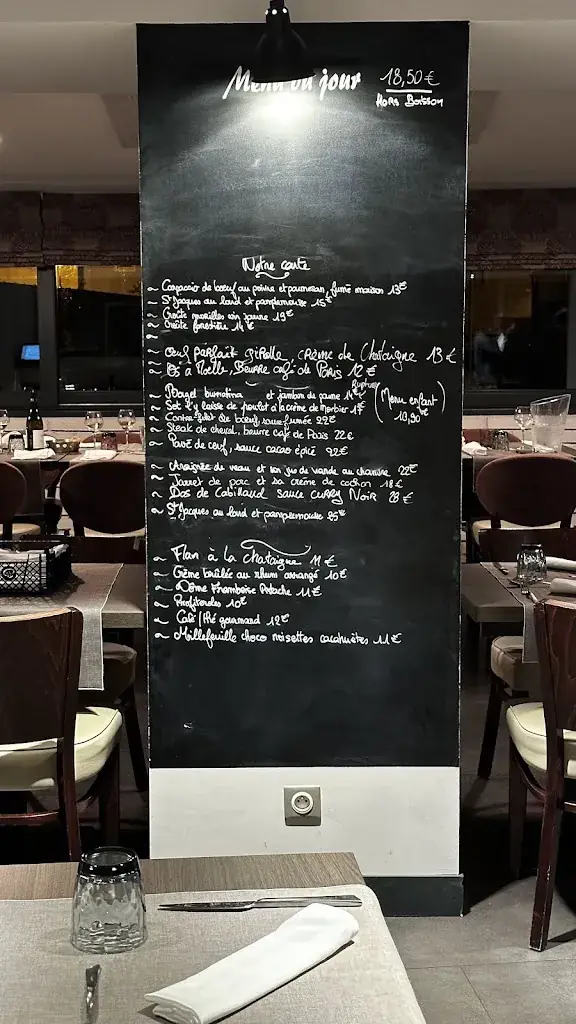 Menu du jour 18,50€
Hors Boisson
Notre carte
~ Carpaccio de bœuf au poivre et parmesan, fumé maison 13€
~ St Jacques au lard et pamplemousse 15€
~ Croûte morilles vin jaune 19€
~ Croûte forestière 14€
~
~ Œuf parfait girolle, crème de Chataigne 13€
~ Os à Moelle, Beurre café de Paris 12€
~ Bagel burratina et jambon de
~ Sot l'y laisse de poulet à la crème de morbier
(Menu enfant)
10,90€
~ Contre filet de bœuf, sauce fumée 22€
~ Steak de cheval, beurre café de Paris 22€
~ Pavé de cerf, sauce cacao épicé 22€
~ Araignée de veau et son jus de viande au 22€
~ Jarret de porc et sa crème de cochon 18€
~ Dos de Cabillaud sauce curry Noir 23€
~ St Jacques au lard et pamplemousse 25€
~ Flan à la chataigne 11€
~ Crème brûlée au rhum arrangé 10€
~ Dôme Framboise Pistache 11€
~ Profiteroles 10€
~ Café/thé gourmand 12€
~ Millefeuille choco noisettes cacahuètes 11€